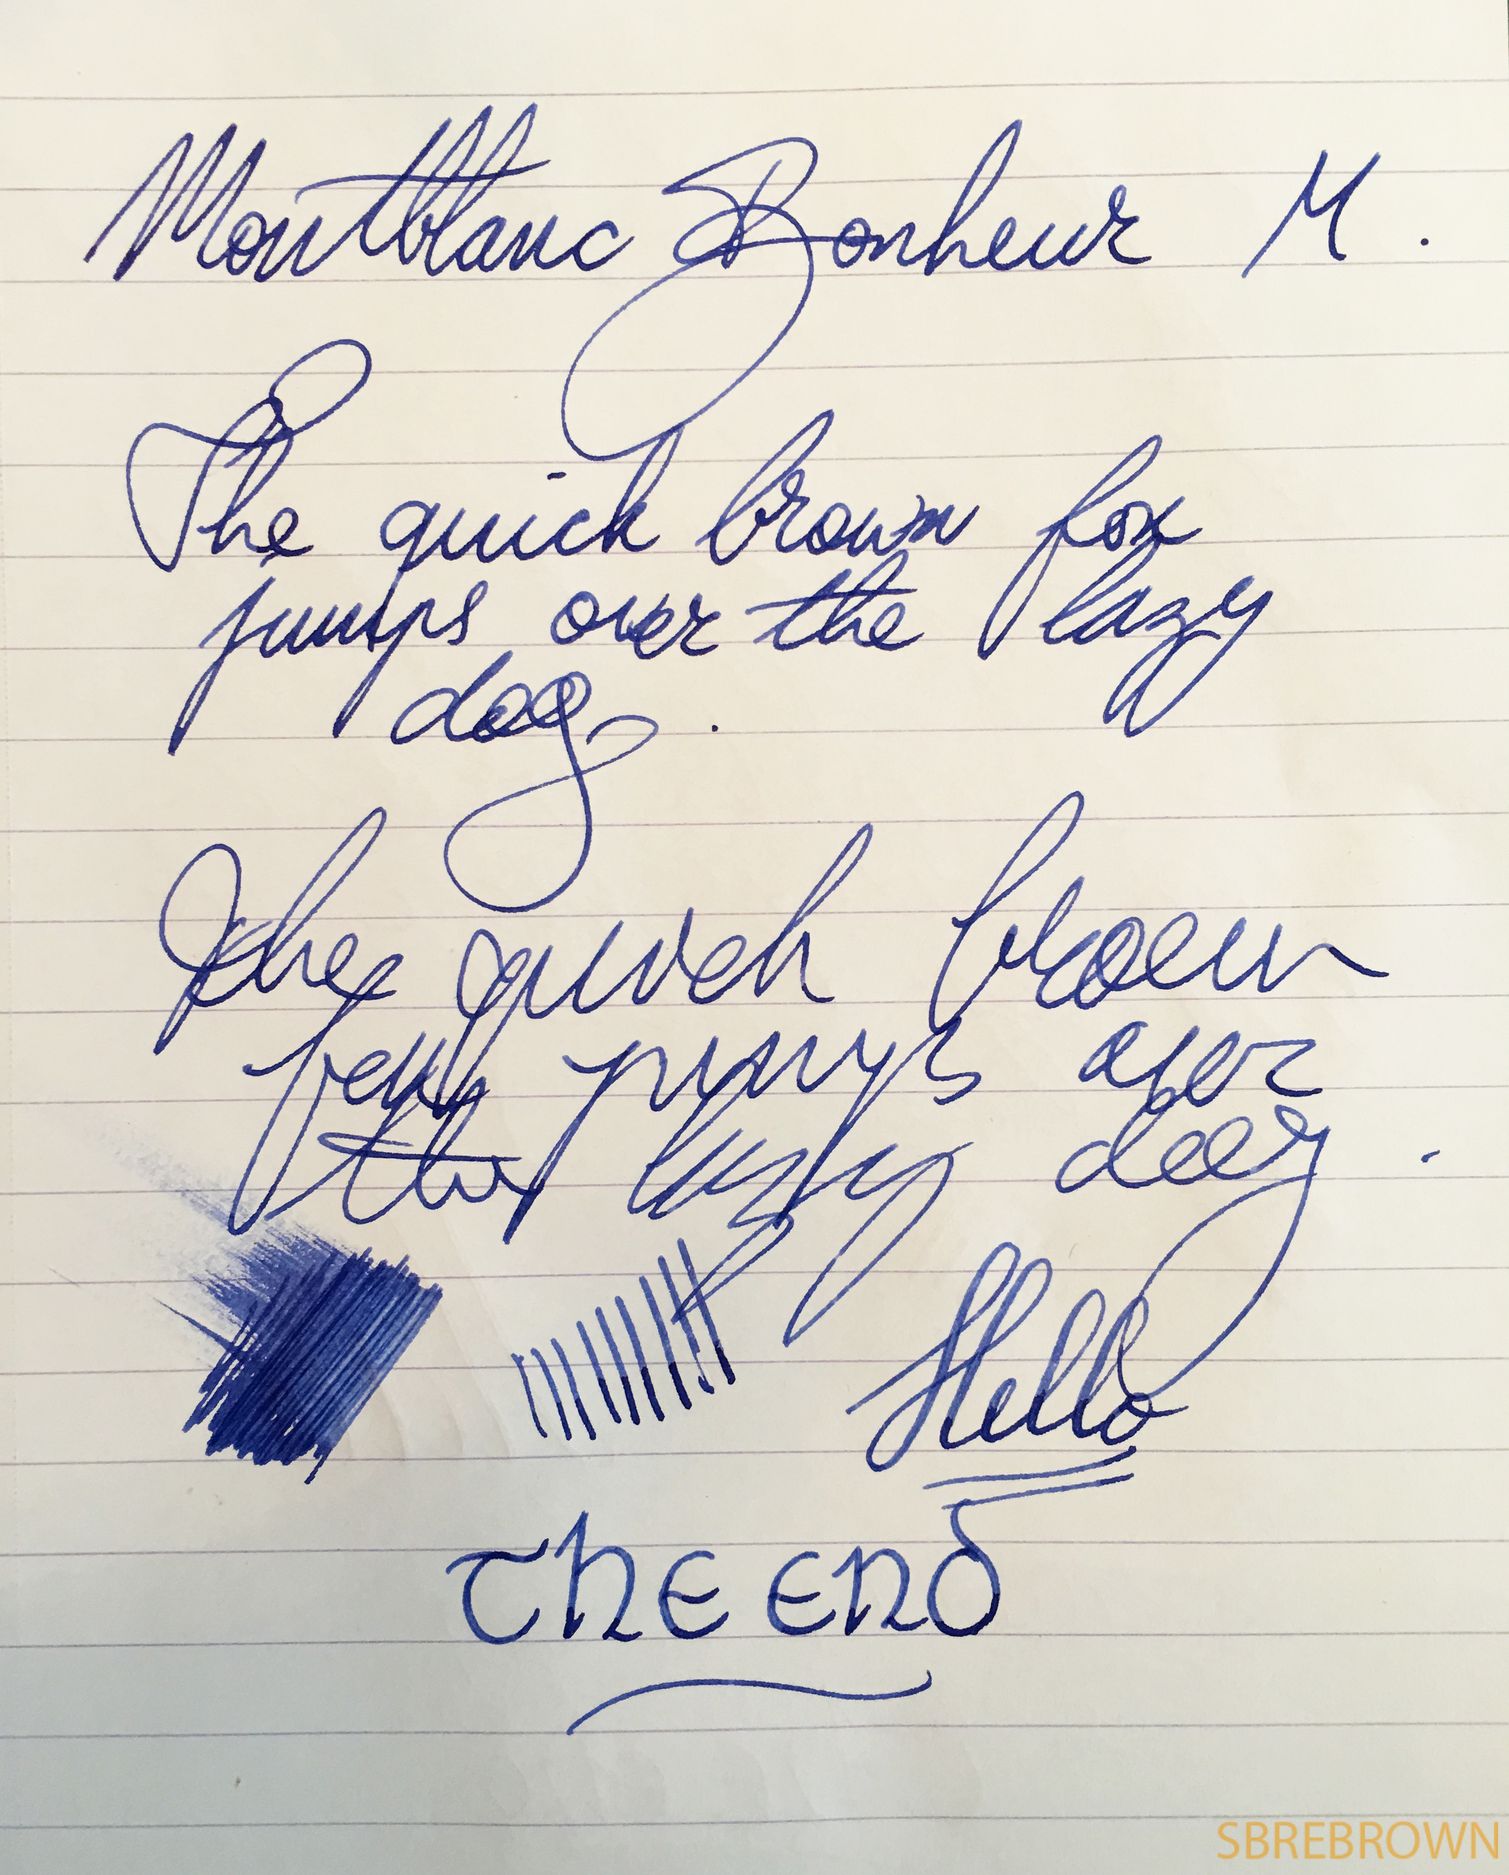 Montblanc Bonheur M.
The quick brown fox
jumps over the lazy
dog.
The quick brown
fox jumps over
the lazy dog.
Hello
The End
SBREBROWN